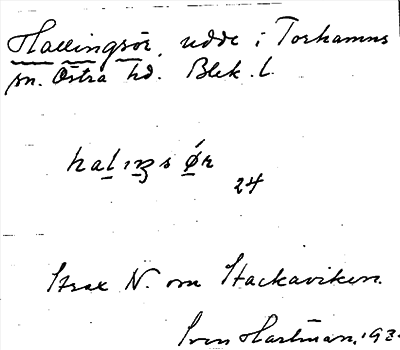 Hallingsör, udde i Torhamns
sn. Östra hd. Blek. l.
halıŋsǿr
24
Strax N. om Stackaviken.
Sven Hartman, 193